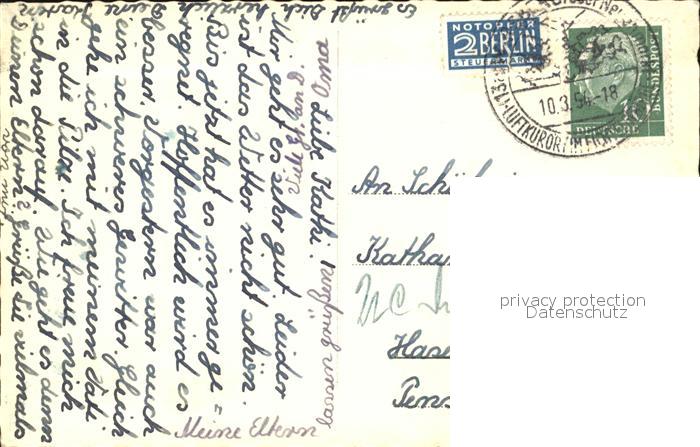 Liebe Kathi!
Mir geht es sehr gut. Leider
ist das Wetter nicht schön.
Bis jetzt hat es immer ge=
regnet. Hoffentlich wird es
besser. Vorgestern war auch
ein schweres Gewitter. Gleich
gehe ich mit meinem Vati
in die Ich freue mich
schon darauf. Wie geht es denn
Deinen Eltern? Grüße sie vielmals
von mir
Es grüßt Dich herzlich Deine
Viele Grüße
Oma
Meine Eltern
lassen grüßen!
NOTOPFER
2 BERLIN
STEUERMARKE
10.3.54.-18
LUFTKURORT IM
10
DEUTSCHE
BUNDESPOST
An Schü
Katha
Has
Pens
privacy protection
Datenschutz